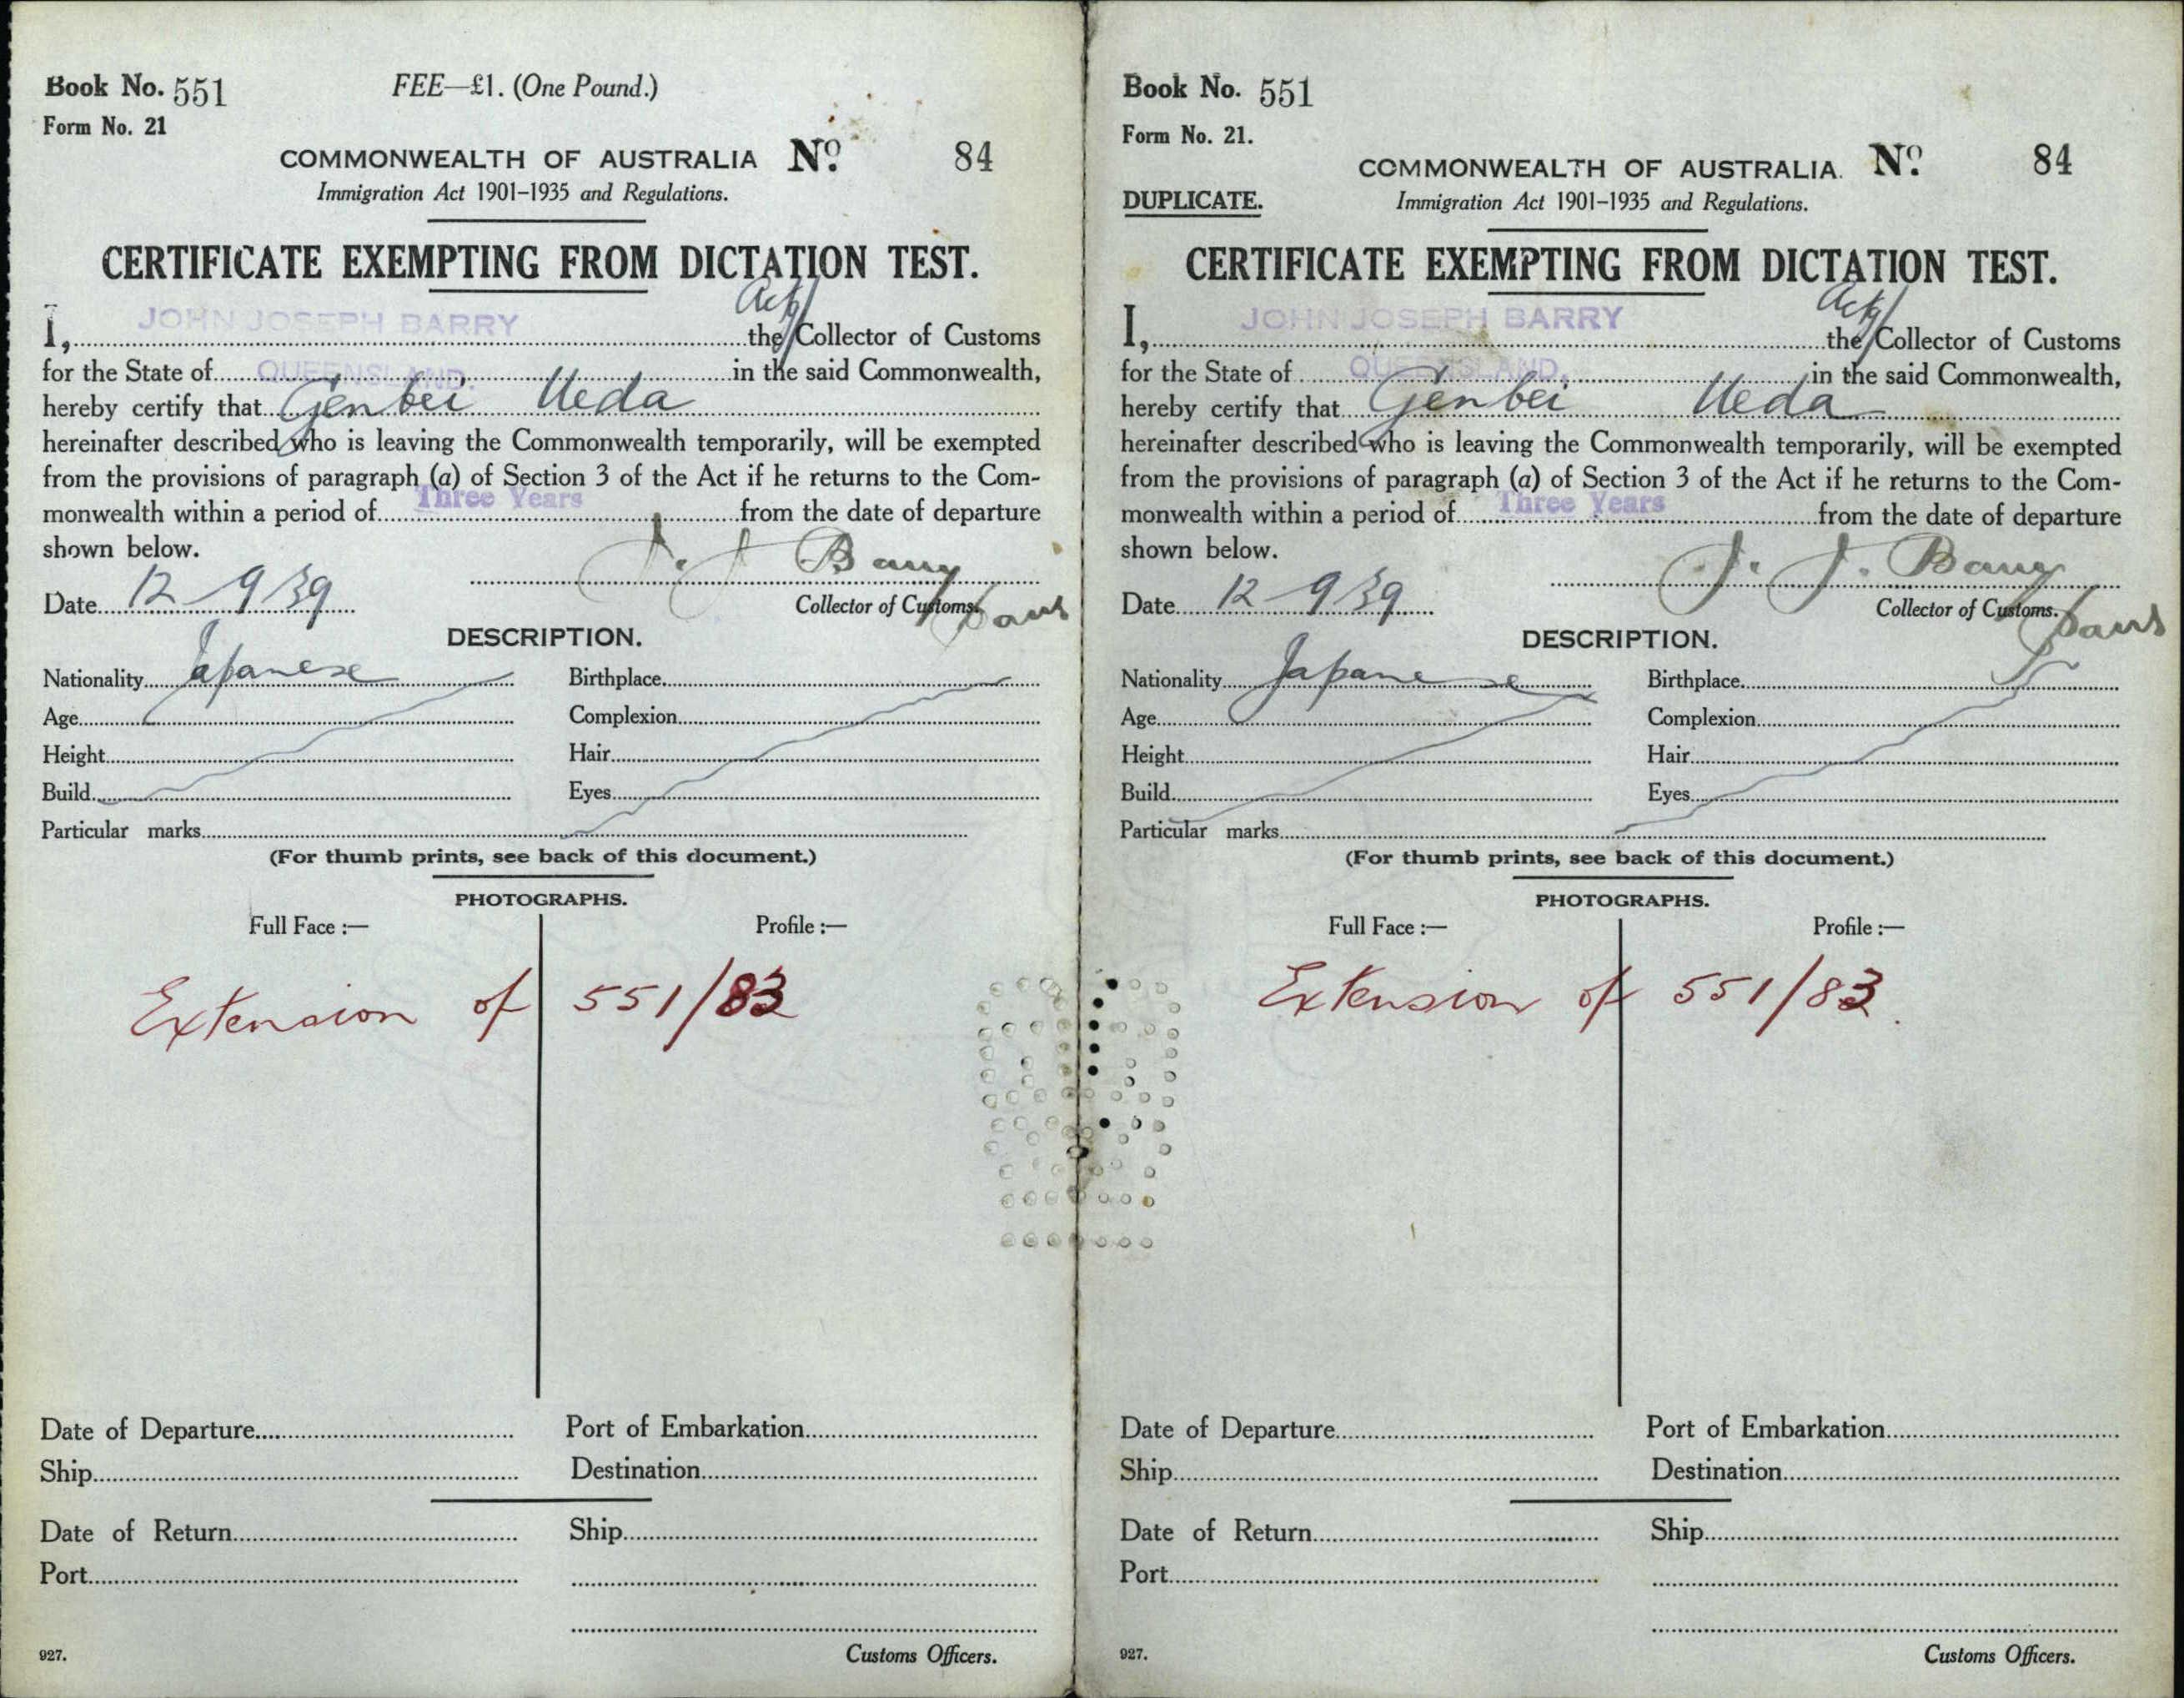 Book No. 551
FEE—£1. (One Pound.)
Form No. 21
COMMONWEALTH OF AUSTRALIA No. 84
Immigration Act 1901–1935 and Regulations.
CERTIFICATE EXEMPTING FROM DICTATION TEST.
I, JOHN JOSEPH BARRY the Actg Collector of Customs
for the State of QUEENSLAND in the said Commonwealth,
hereby certify that Genbei Ueda
hereinafter described who is leaving the Commonwealth temporarily, will be exempted
from the provisions of paragraph (a) of Section 3 of the Act if he returns to the Com-
monwealth within a period of Three Years from the date of departure
shown below.
J. J. Barry
Date 12 9 39
Collector of Customs.
DESCRIPTION.
Nationality Japanese Birthplace
Age Complexion
Height Hair
Build Eyes
Particular marks
(For thumb prints, see back of this document.)
PHOTOGRAPHS.
Full Face :— Profile :—
Extension of 551/83
Date of Departure Port of Embarkation
Ship Destination
Date of Return Ship
Port
927. Customs Officers.
Book No. 551
Form No. 21.
COMMONWEALTH OF AUSTRALIA. No. 84
DUPLICATE. Immigration Act 1901–1935 and Regulations.
CERTIFICATE EXEMPTING FROM DICTATION TEST.
I, JOHN JOSEPH BARRY the Actg Collector of Customs
for the State of QUEENSLAND. in the said Commonwealth,
hereby certify that Genbei Ueda
hereinafter described who is leaving the Commonwealth temporarily, will be exempted
from the provisions of paragraph (a) of Section 3 of the Act if he returns to the Com-
monwealth within a period of Three Years from the date of departure
shown below.
J. J. Barry
Date 12 9 39
Collector of Customs.
DESCRIPTION.
Nationality Japanese Birthplace
Age Complexion
Height Hair
Build Eyes
Particular marks
(For thumb prints, see back of this document.)
PHOTOGRAPHS.
Full Face :— Profile :—
Extension of 551/83.
Date of Departure Port of Embarkation
Ship Destination
Date of Return Ship
Port
927. Customs Officers.